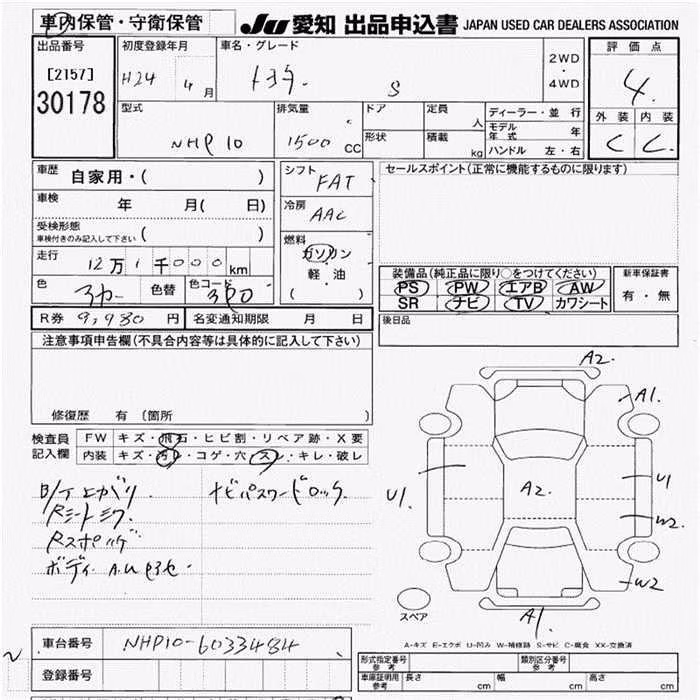 車内保管・守衛保管 JU 愛知 出品申込書 JAPAN USED CAR DEALERS ASSOCIATION
出品番号 初度登録年月 車名・グレード 2WD・4WD 評価点
[2157] H24 4月 S 4
30178
型式 排気量 ドア 定員 人 ディーラー・並行 外装 内装
NHP10 1500 CC 形状 積載 kg モデル年式 年 C C
ハンドル 左・右
車歴 自家用・( ) シフト FAT セールスポイント(正常に機能するものに限ります)
車検 年 月( 日) 冷房 AAC
受検形態 ( )
車検付きのみ記入して下さい
燃料 ガソリン・軽油 ( )
走行 12万1千000km
装備品(純正品に限り○をつけてください) 新車保証書
色 色替 色コード 3P0 PS PW エアB AW 有・無
SR ナビ TV カワシート
R券 9,980円 名変通知期限 月 日 後日品
注意事項申告欄(不具合内容等は具体的に記入して下さい)
A2.
A1.
修復歴 有 (箇所 )
検査員 FW キズ・飛石・ヒビ割・リペア跡・X要
記入欄 内装 キズ・汚レ・コゲ・穴・スレ・キレ・破レ
ナビパスワードロック.
U1. A2. U1
W2
Rシートシワ
ボディ A.U
W2
スペア
A1.
A-キズ E-エクボ U-凹み W-補修跡 S-サビ C-腐食 XX-交換済
車台番号 NHP10-6033484
登録番号
形式指定番号 参考 類別区分番号 参考
車庫証明用 参考 長さ cm 幅 cm 高さ cm